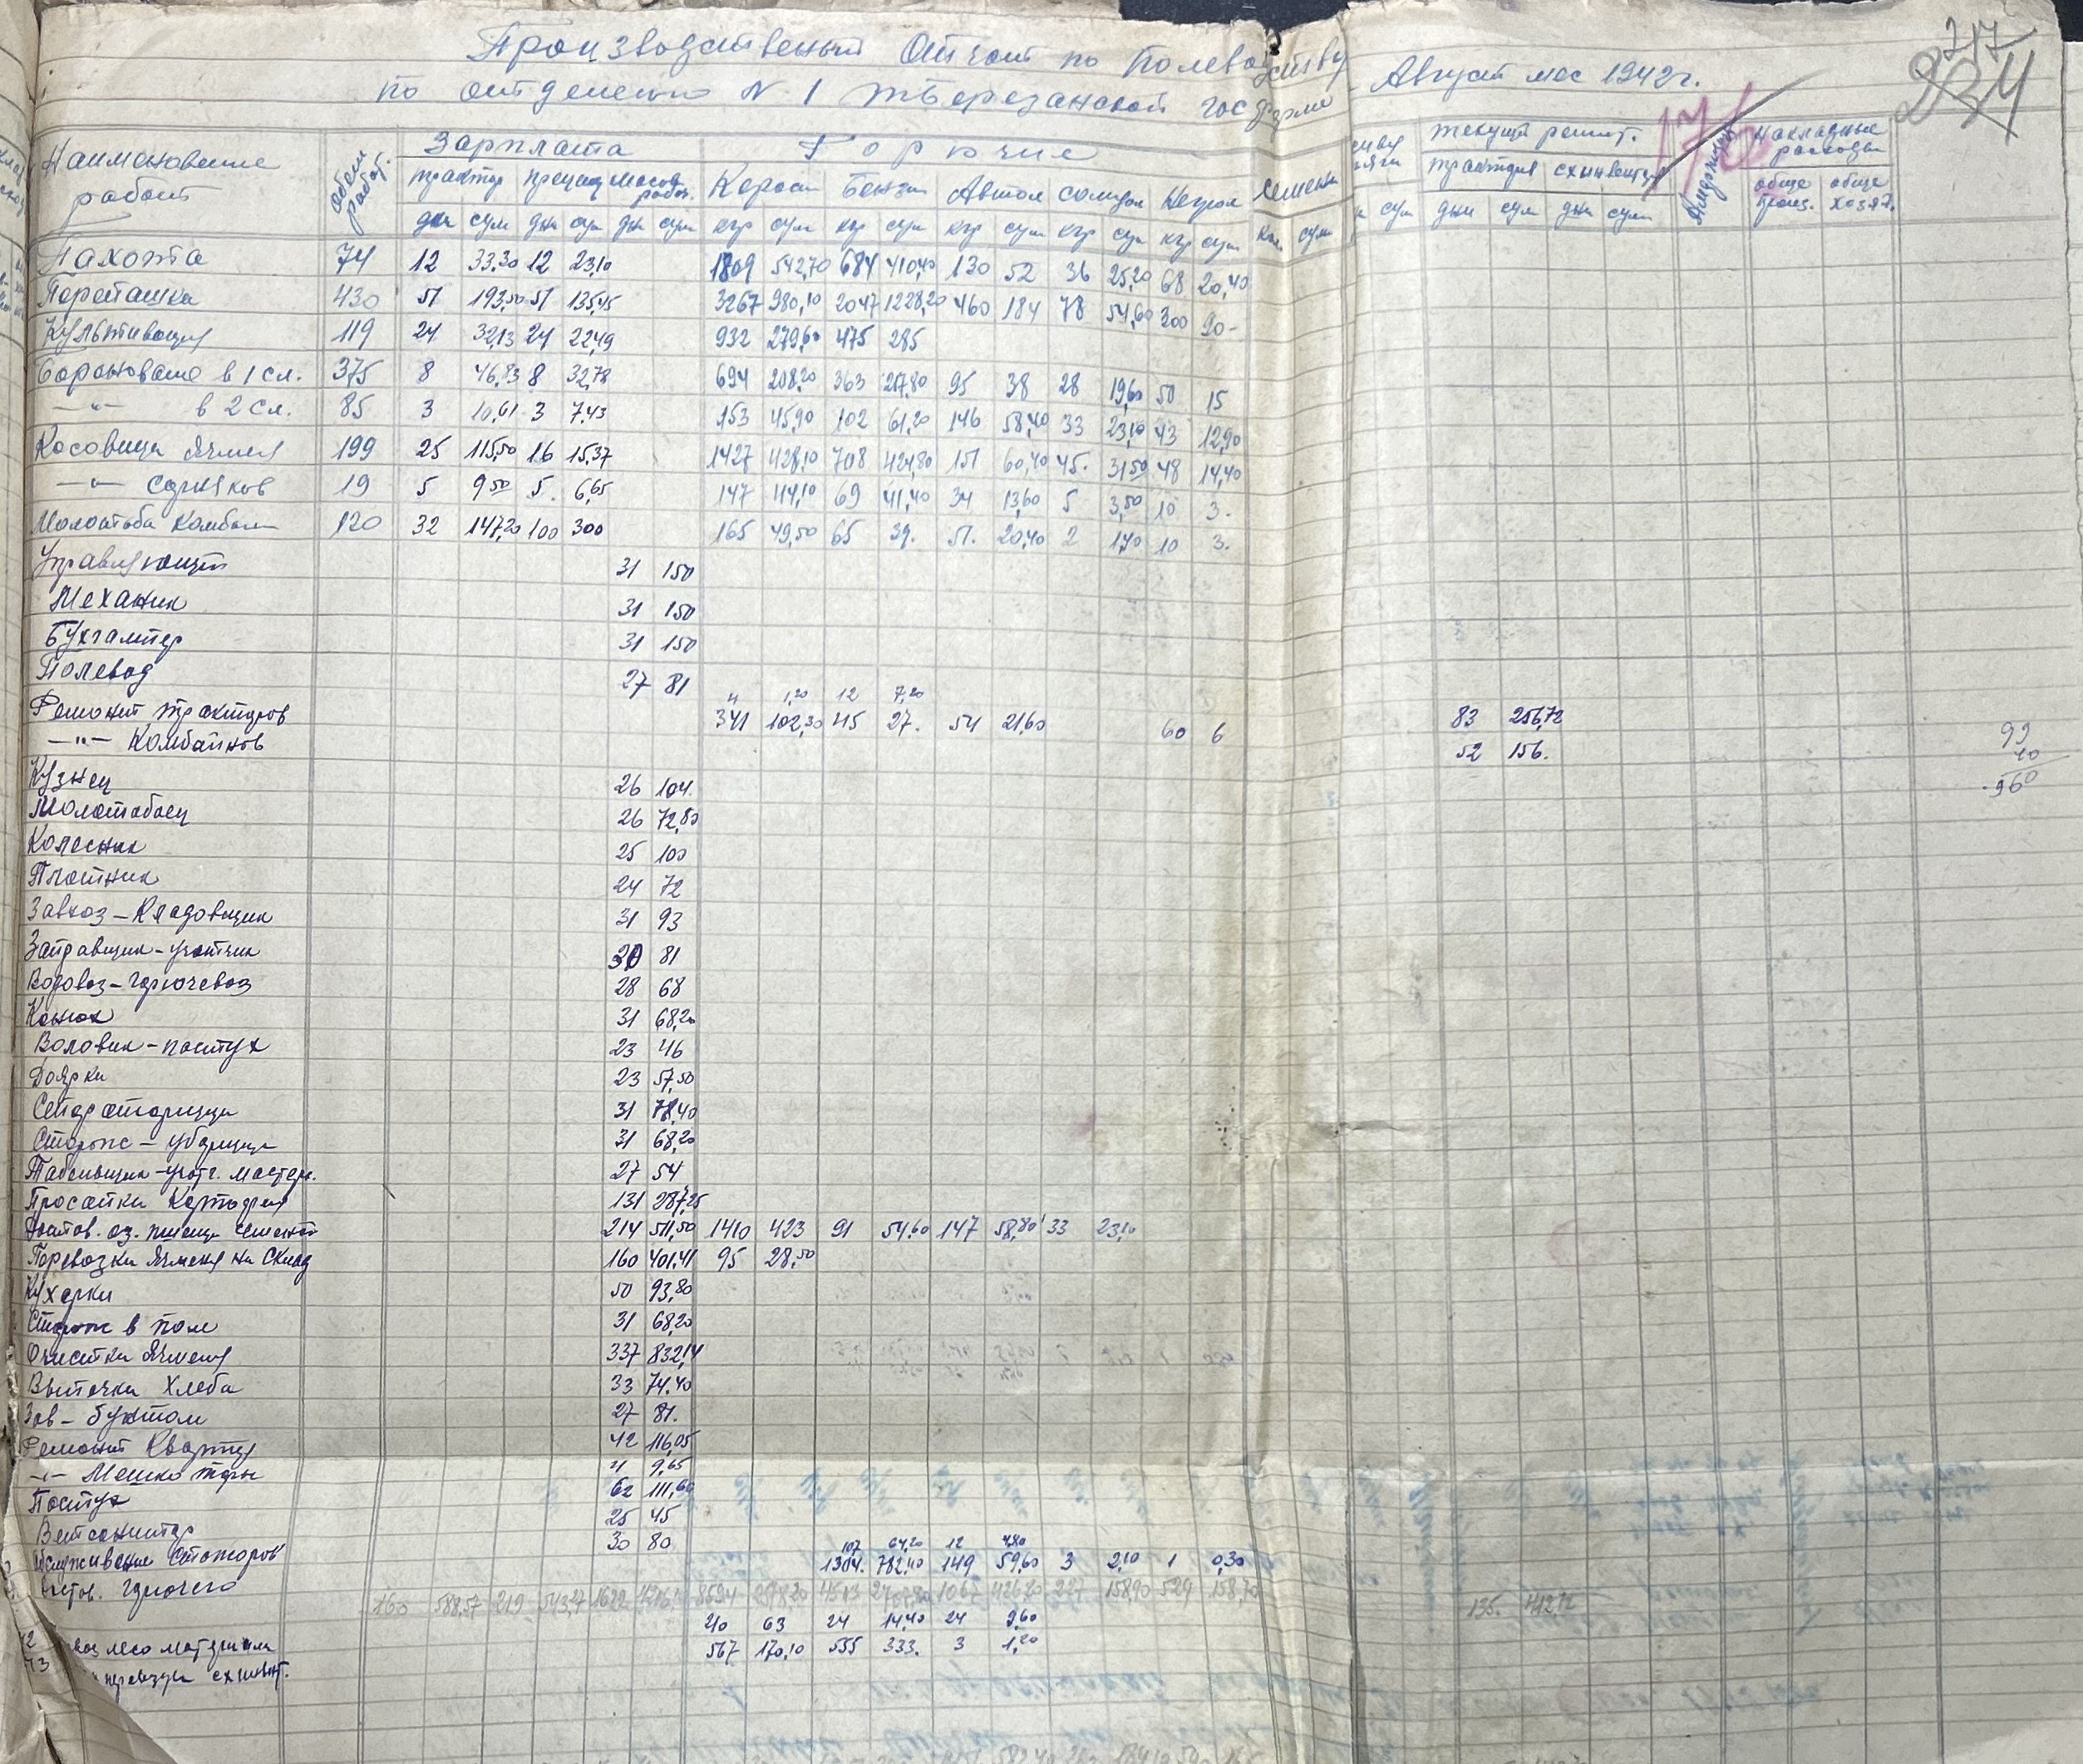 Производственный Отчет по Полеводству Август мес 1942 г.
по отделению № 1 Тверезанской госфермы
217
234
176
Наименование работ
Объем работ.
Зарплата
Горючие
Семена
текущ ремонт.
Амортиз
Накладные расходы
трактор прицеп Массов. работ. Кероси Бензин Автол солидол Негрол
трактора схинвентар обще произв. обще хозяй.
дни сум дни сум дни сум кгр сум кгр сум кгр сум кгр сум кгр сум Кол. сум сум дни сум дни сум
Пахота 74 12 33,30 12 23,10 1809 542,70 684 410,40 130 52 36 25,20 68 20,40
Перепашка 430 51 193,50 51 135,45 3267 980,10 2047 1228,20 460 184 78 54,60 300 90-
Культивация 119 24 32,13 24 22,49 932 279,60 475 285
Боронование в 1 сл. 375 8 46,83 8 32,78 694 208,20 363 217,80 95 38 28 19,60 50 15
—"— в 2 сл. 85 3 10,61 3 7,43 153 45,90 102 61,20 146 58,40 33 23,10 43 12,90
Косовица Ячменя 199 25 115,50 16 15,37 1427 428,10 708 424,80 151 60,40 45. 31,50 48 14,40
—"— Сорняков 19 5 9,50 5. 6,65 147 44,10 69 41,40 34 13,60 5 3,50 10 3.
Молотьба Комбайн 120 32 147,20 100 300 165 49,50 65 39. 51. 20,40 2 1,40 10 3.
Управляющий 31 150
Механик 31 150
Бухгалтер 31 150
Полевод 27 81
4 1,20 12 7,20
Ремонт тракторов 341 102,30 45 27. 54 21,60 60 6 83 256,72
—"— Комбайнов 52 156.
Кузнец 26 104.
Молотобоец 26 72,80
Колесник 25 100
Плотник 24 72
Завхоз-Кладовщик 31 93
Заправщик-учетчик 30 81
Водовоз-горючевоз 28 68
Конюх 31 68,20
Воловик-пастух 23 46
Доярки 23 57,50
Сепараторщица 31 78,40
Сторож-уборщица 31 68,20
Табельщик-учетч. мастерс. 27 54
Просапка Картофеля 131 287,25
Достав. оз. пшениц семенной 214 511,50 1410 423 91 54,60 147 58,80 33 23,10
Перевозки Ячменя на Склад 160 401,41 95 28,50
Кухарки 50 93,80
Сторож в поле 31 68,20
Очистки Ячменя 337 832,14
Выпечки Хлеба 33 74,40
Зав- бунтом 27 81.
Ремонт Квартир 42 116,05
—"— Мешко тары 4 9,65
Пастух 62 111,60
25 45
Ветсанитар 30 80
107 64,20 12 4,80
Обслуживание Статоров 1304. 782,40 149 59,60 3 2,10 1 0,30
горючего
160 588,57 219 543,27 529 158,70 135. 412,72
210 63 24 14,40 24 9,60
лесоматериала 567 170,10 555 333. 3 1,20
схинвент.